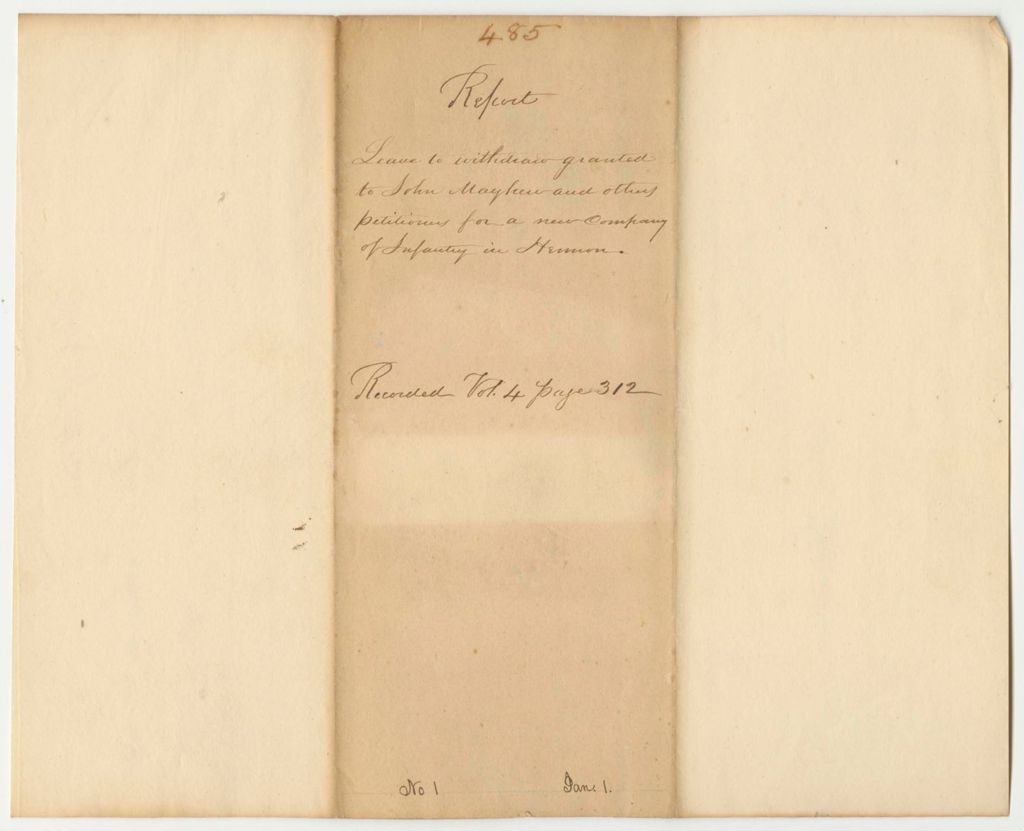 485
Report
Leave to withdraw granted
to John Mayhew and others
petitioners for a new Company
of Infantry in Hermon.
Recorded Vol. 4 page 312
No 1 Jan. 1.